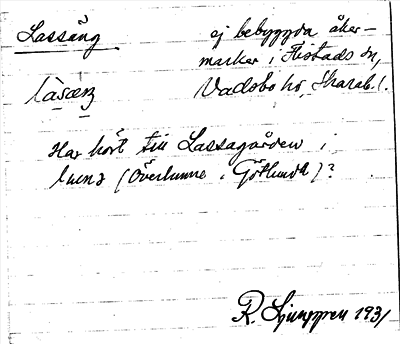 Lassäng
ej bebyggda åker-
marker i Flistads sn,
Vadsbo hd, Skarab. l.
làsæŋ
Har hört till Lassagården i
(Överlunne i Götlunda)?
R. Ljunggren 1931